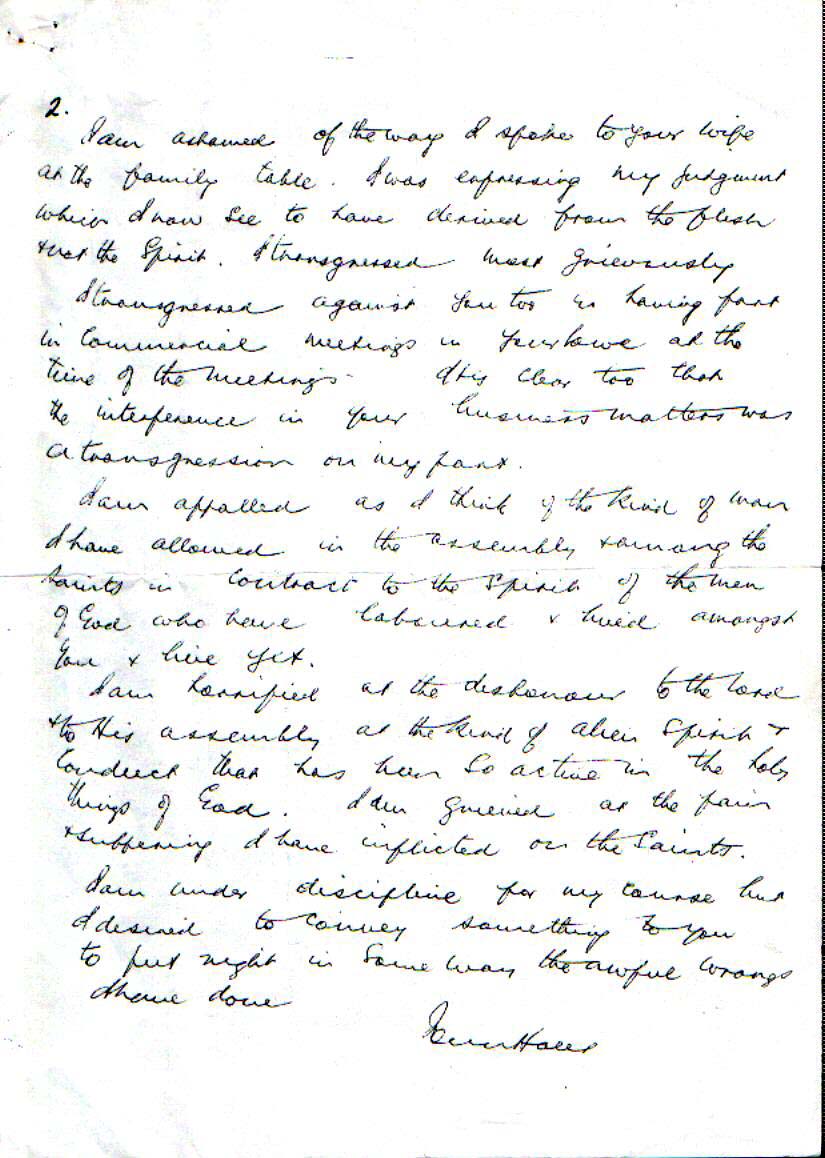 2.
I am ashamed of the way I spoke to your wife
at the family table. I was expressing my judgment
which I now see to have derived from the flesh
& not the Spirit. I transgressed most grievously
I transgressed against you too in having part
in commercial meetings in your town at the
time of the meetings. It is clear too that
the interference in your business matters was
a transgression on my part.
I am appalled as I think of the kind of man
I have allowed in the assembly & among the
saints in contract to the Spirit of the men
of God who have laboured & lived amongst
you & live yet.
I am horrified at the dishonour to the Lord
& to His assembly at the kind of alien Spirit &
conduct that has been so active in the holy
things of God. I am grieved at the pain
& suffering I have inflicted on the Saints.
I am under discipline for my course but
I desired to convey something to you
to put right in some way the awful wrongs
I have done